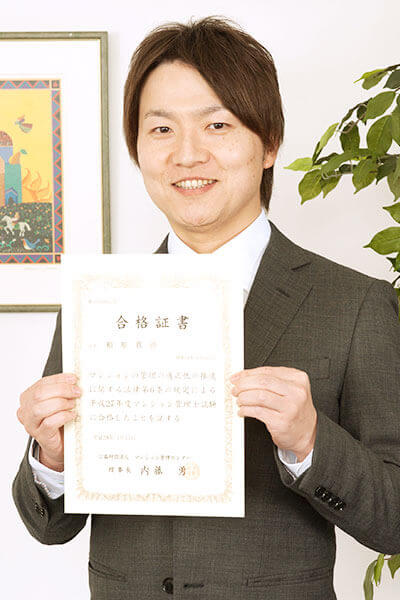 合格証書
マンションの管理の適正化の推進
に関する法律第6条の規定による
平成27年度マンション管理士試験
に合格したことを証する
公益財団法人 マンション管理センター
理事長 内藤 勇